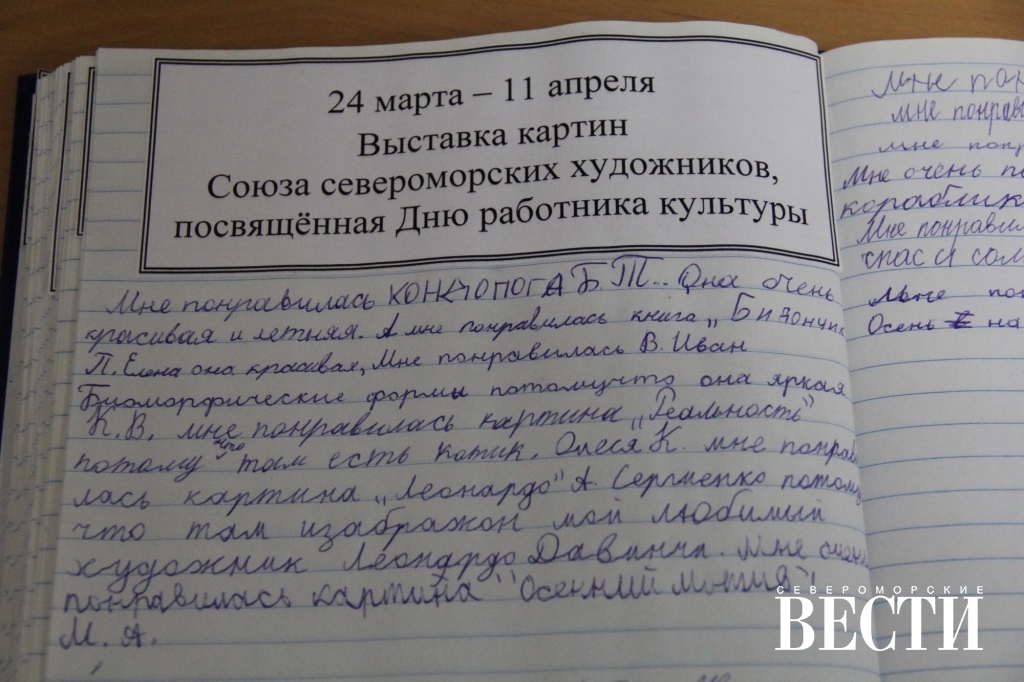 24 марта – 11 апреля
Выставка картин
Союза североморских художников,
посвящённая Дню работника культуры
Мне понравилась КОНДОПОГА Б.Т.. Она очень
красивая и летняя. А мне понравилась книга „Битончик
П. Елена она красивая, Мне понравилась В. Иван
Биоморфические формы потомучто она яркая
К.В. мне понравилась картина „Реальность"
потому что там есть котик. Олеся К. мне понрави
лась картина „Леонардо" А. Сергиенко потому
что там изабражон мой любимий
художник Леонардо Давинчи. Мне очень
понравилась картина "Осенний мотив"!
М. А.
Мне пон
мне понрави
мне понр
Мне очень по
кораблик
Мне понравил
спас и сол
Мне пон
Осень на
СЕВЕРОМОРСКИЕ
ВЕСТИ